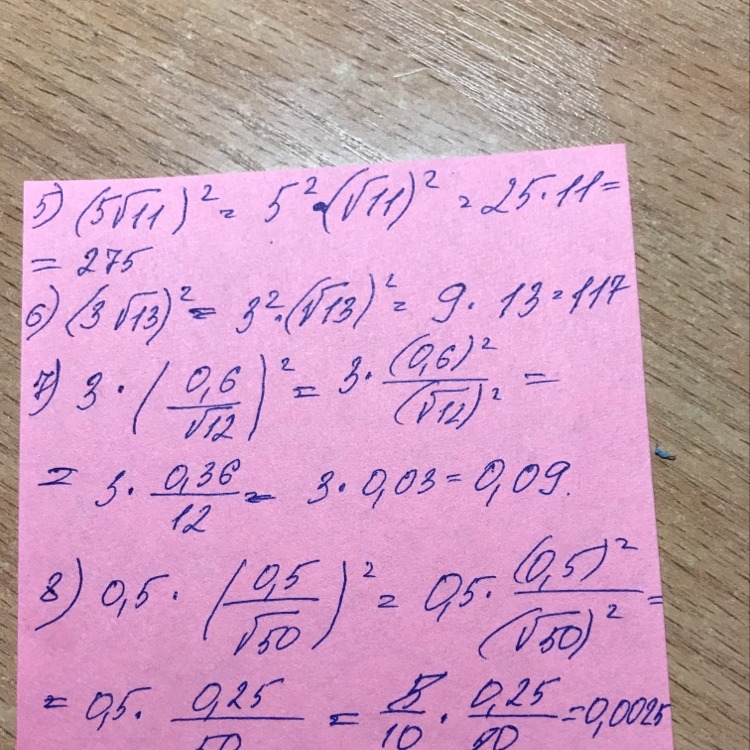 5) (5√11)² = 5² · (√11)² = 25 · 11 =
= 275
6) (3√13)² = 3² · (√13)² = 9 · 13 = 117
7) 3 · (0,6/√12)² = 3 · (0,6)²/(√12)² =
= 3 · 0,36/12 = 3 · 0,03 = 0,09.
8) 0,5 · (0,5/√50)² = 0,5 · (0,5)²/(√50)² =
= 0,5 · 0,25/50 = 5/10 · 0,25/ = 0,0025